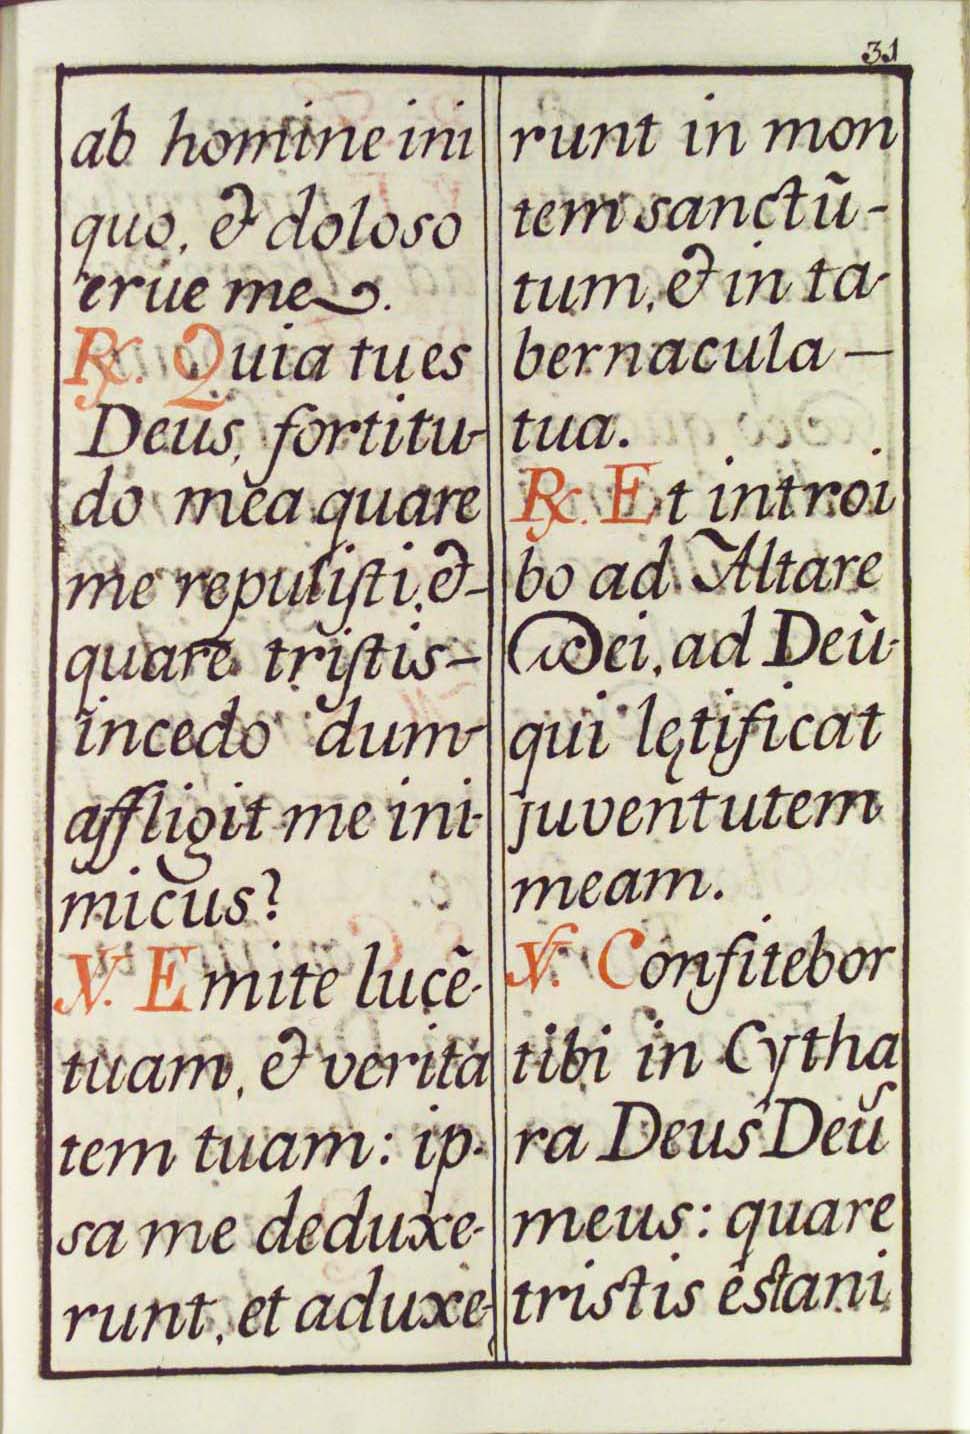 31
ab homine ini
quo, & doloso
erue me.
℟. Quia tu es
Deus, fortitu-
do mea quare
me repulisti, &-
quare tristis-
incedo dum-
affligit me ini-
micus?
℣. Emite lucẽ-
tuam, & verita
tem tuam: ip-
sa me deduxe-
runt, et aduxe-
runt in mon
tem sanctũ-
tum, & in ta-
bernacula-
tua.
℟. Et introi
bo ad Altare
Dei, ad Deũ-
qui lętificat
juventutem
meam.
℣. Confitebor
tibi in Cytha
ra Deus Deus
meus: quare
tristis est ani